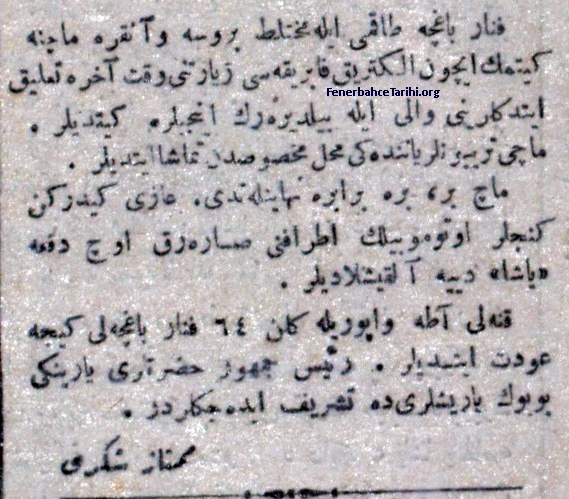 فنار باغچه طاقمی ایله مختلط بروسه و آنقره ماچنه
كیتمك ایچون الكتریق فابریقه سی زیارتنی وقت آخره تعلیق
FenerbahceTarihi.org
ایتدكارینی والی ایله بیلدیره‌رك كیتدیلر .
ماچی تریبونلر یاننده كی محل مخصوصدن تماشا ایتدیلر .
ماچ بره بره برابره نهایتلندی. غازی كیدركن
كنجلر اوتوموبیلك اطرافنی صاره‌رق اوچ دفعه
«پاشا» دییه آلقیشلادیلر .
قنه لی آطه واپوریله كلن ٦٤ فنار باغچه لی كیجه
عودت ایتدیلر . رئیس جمهور حضرتلری یارینكی
بویوك یاریشلری ده تشریف ایده جكلردر .
ممتاز شكری